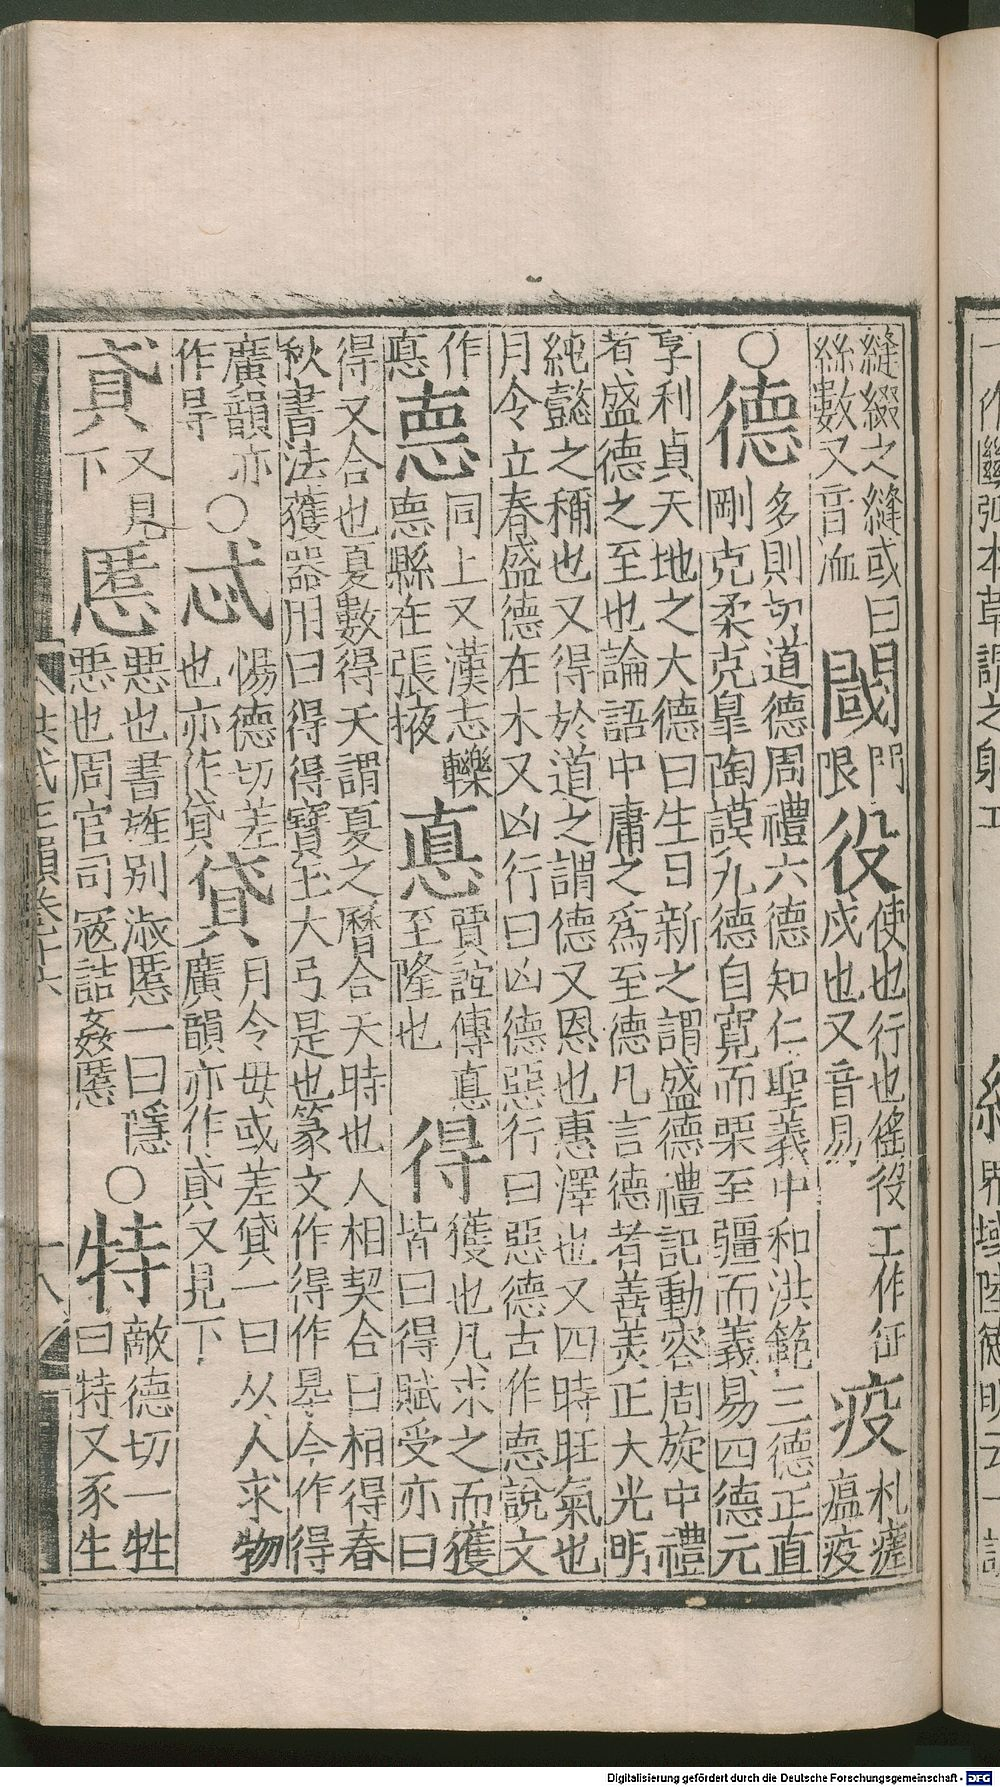 縫綴之縫或曰
絲數又音洫
閾
門
限
役
使也行也徭役工作征
戍也又音易
疫
札瘥
瘟疫
○德
多則切道德周禮六德知仁聖義中和洪範三德正直
剛克柔克臯陶謨九德自寬而栗至彊而義易四德元
亨利貞天地之大德曰生日新之謂盛德禮記動容周旋中禮
者盛德之至也論語中庸之爲至德凡言德者善美正大光明
純懿之稱也又得於道之謂德又恩也惠澤也又四時旺氣也
月令立春盛德在木又凶行曰凶德惡行曰惡德古作悳說文
作
惪
悳
同上又漢志轢
悳縣在張掖
惪
賈誼傳惪
至隆也
得
獲也凡求之而獲
皆曰得賦受亦曰
得又合也夏數得天謂夏之曆合天時也人相契合曰相得春
秋書法獲器用曰得得寶玉大弓是也篆文作得作㝵今作得
廣韻亦
作㝵
○忒
惕德切差
也亦作貣
貸
月令毋或差貸一曰从人求物
廣韻亦作貣又見下
貣
又見
下
慝
惡也書旌别淑慝一曰隱
惡也周官司寇詰姦慝
○特
敵德切一牲
曰特又豕生
洪武正韻卷十六
十八
界域陸德明云一說
Digitalisierung gefördert durch die Deutsche Forschungsgemeinschaft - DFG